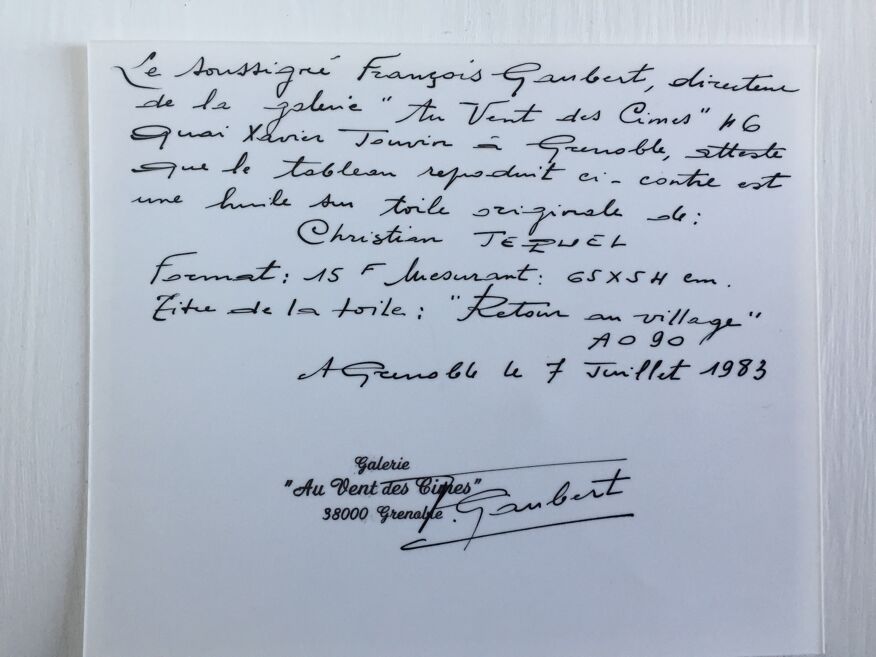 Le soussigné François Gaubert, directeur
de la galerie "Au Vent des Cimes" 46
Quai Xavier Jouvin à Grenoble, atteste
que le tableau reproduit ci-contre est
une huile sur toile originale de:
Christian JEQUEL
Format: 15 F Mesurant: 65X54 cm.
Titre de la toile: "Retour au village"
A090
A Grenoble le 7 Juillet 1983
Galerie
"Au Vent des Cimes"
38000 Grenoble
F. Gaubert